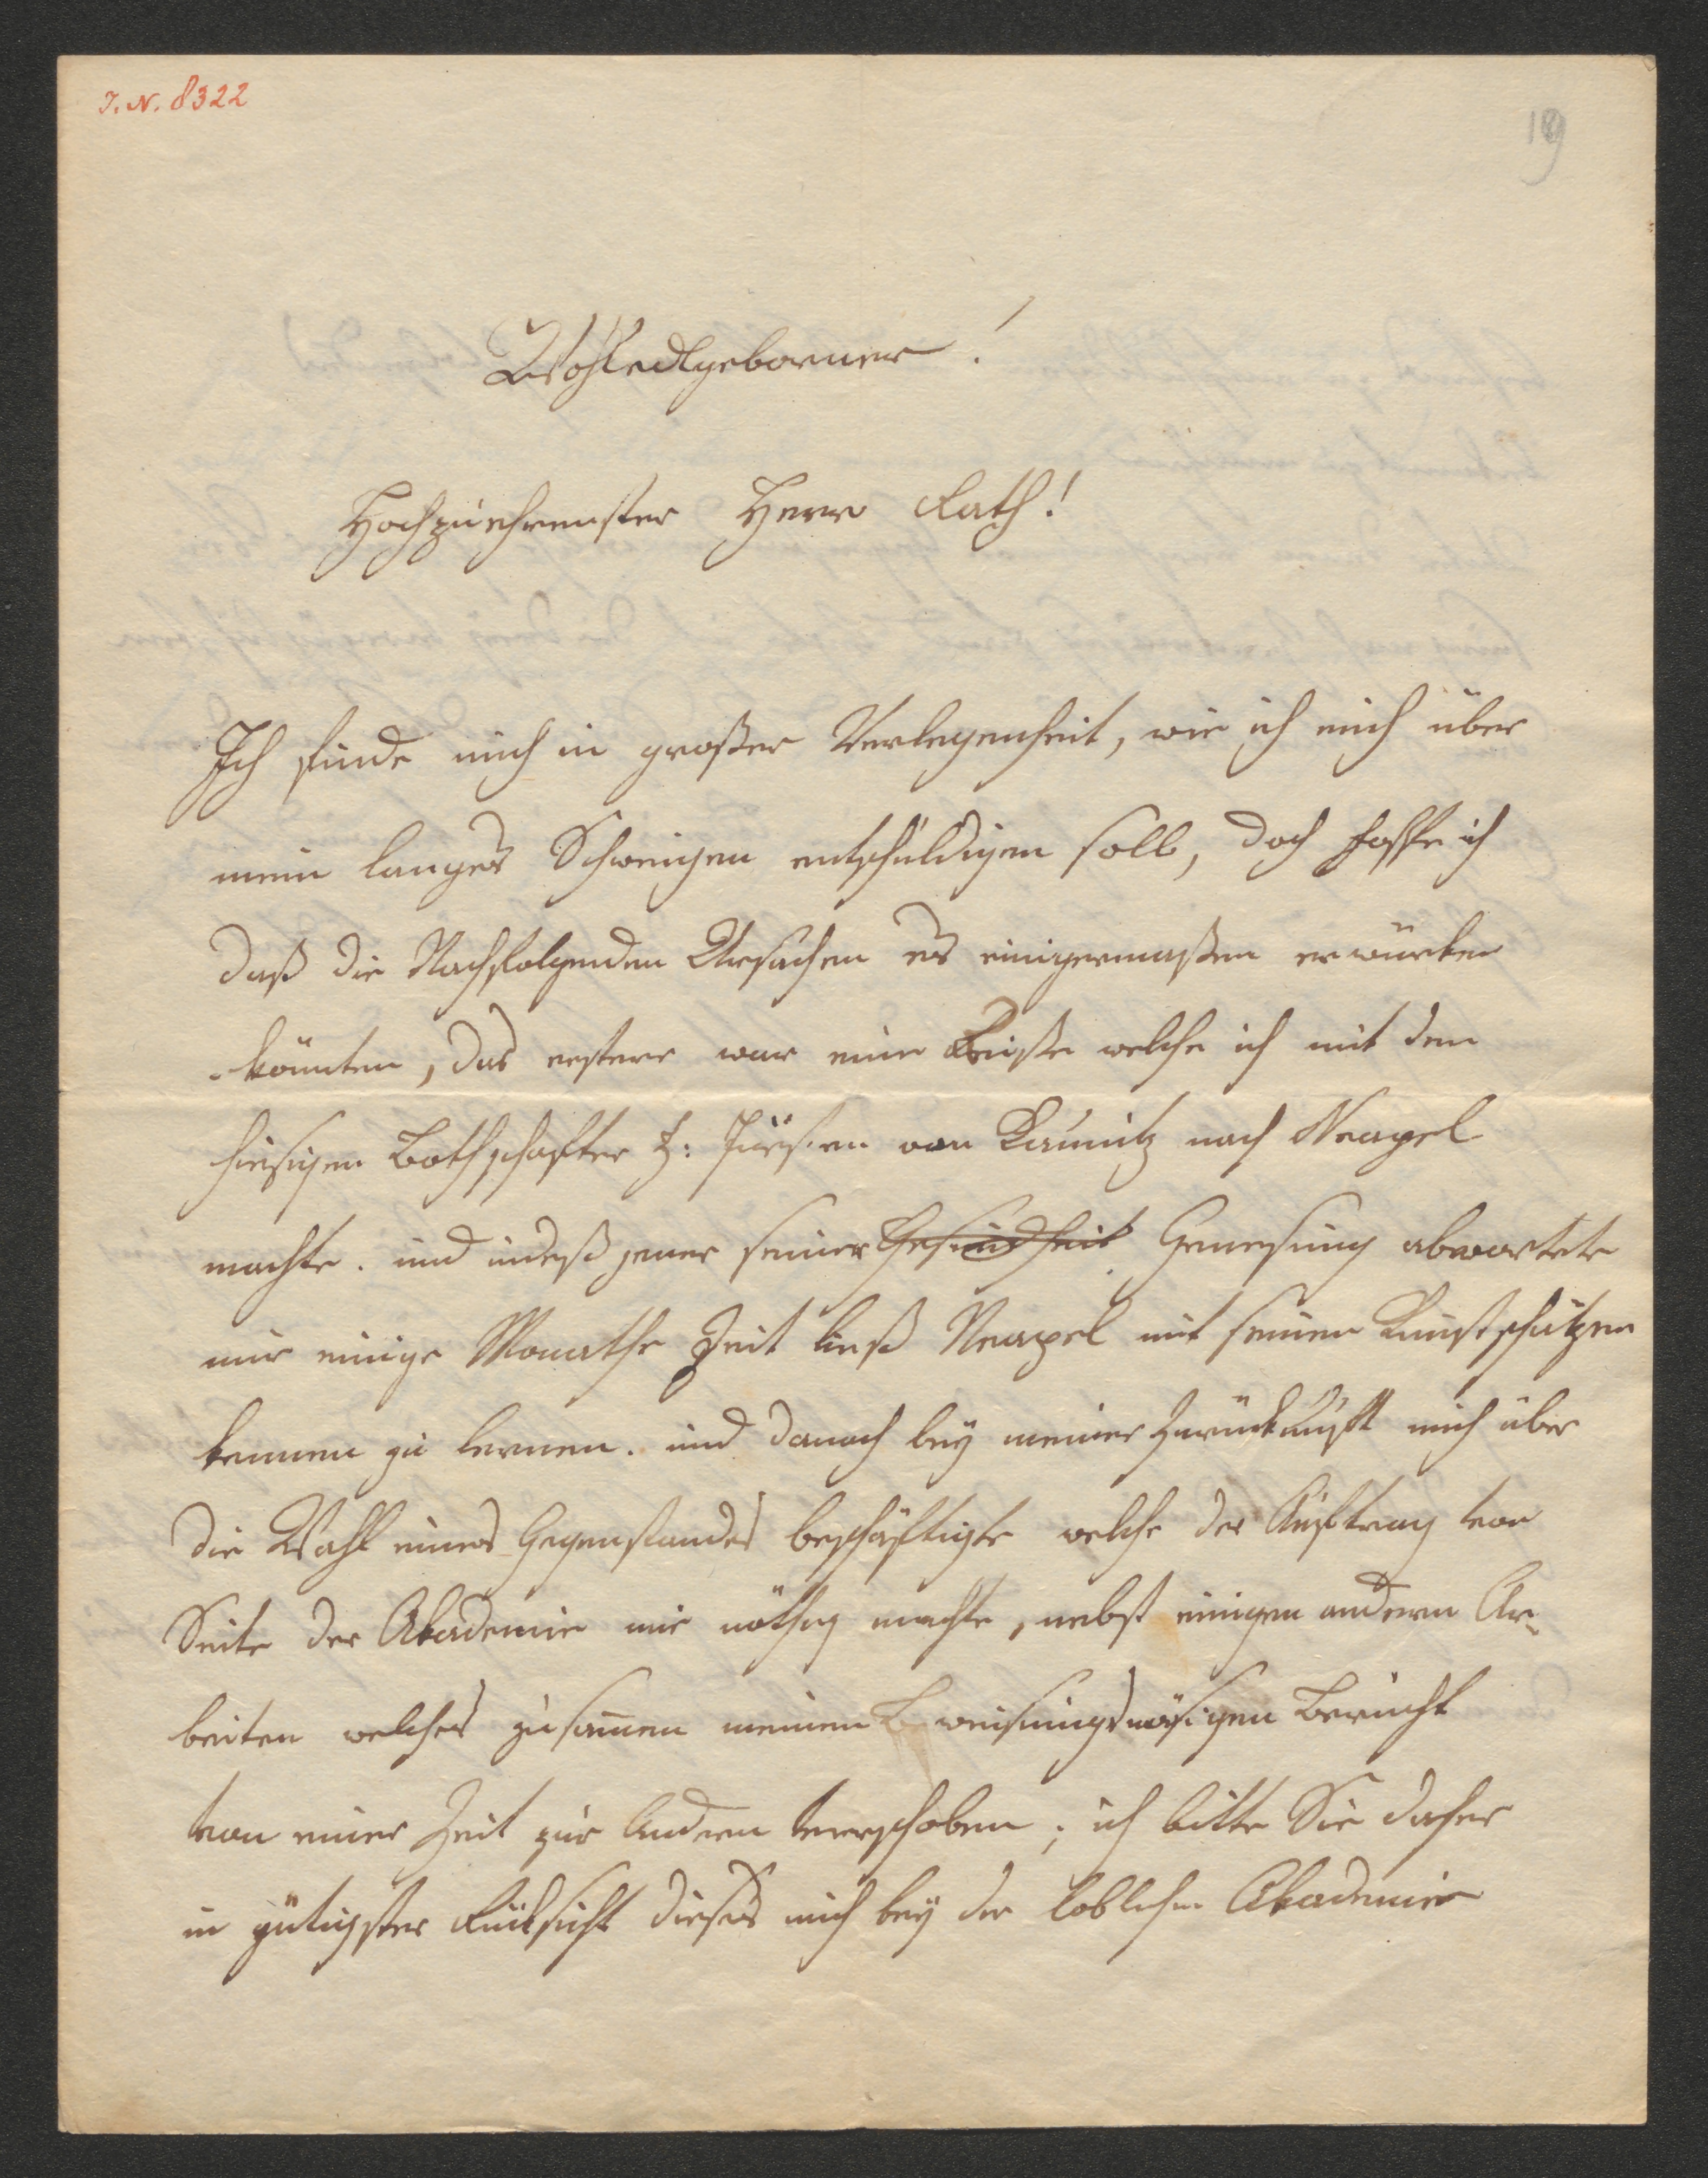 J. N. 8322
19
Wohledlgeborner!
Hochzuehrenster Herr Rath!
Ich finde mich in großer Verlegenheit, wie ich mich über
mein langes Schweigen entschuldigen soll, doch hoffe ich
daß die Nachfolgenden Ursachen es einigermaßen erwürken
könnten, das erstere war eine Reise welche ich mit dem
hiesigen Bothschafter Fürsten von Kaunitz nach Neapel
machte. und indeß jener seiner Gesundheit Genesung abwartete
mir einige Monathe Zeit ließ Neapel mit seinen Kunstschätzen
kennen zu lernen. und danach bey meiner Zurückkunft mich über
die Wahl eines Gegenstandes beschäftigte welche der Auftrag von
Seite der Akademie mir nöthig machte, nebst einigen andern Ar-
beiten welches zusamen meinen weisungsmäsigen Bericht
von einer Zeit zur Andern verschoben; ich bitte Sie daher
in gütigster Rüksicht dieses mich bey der loblichen Akademie